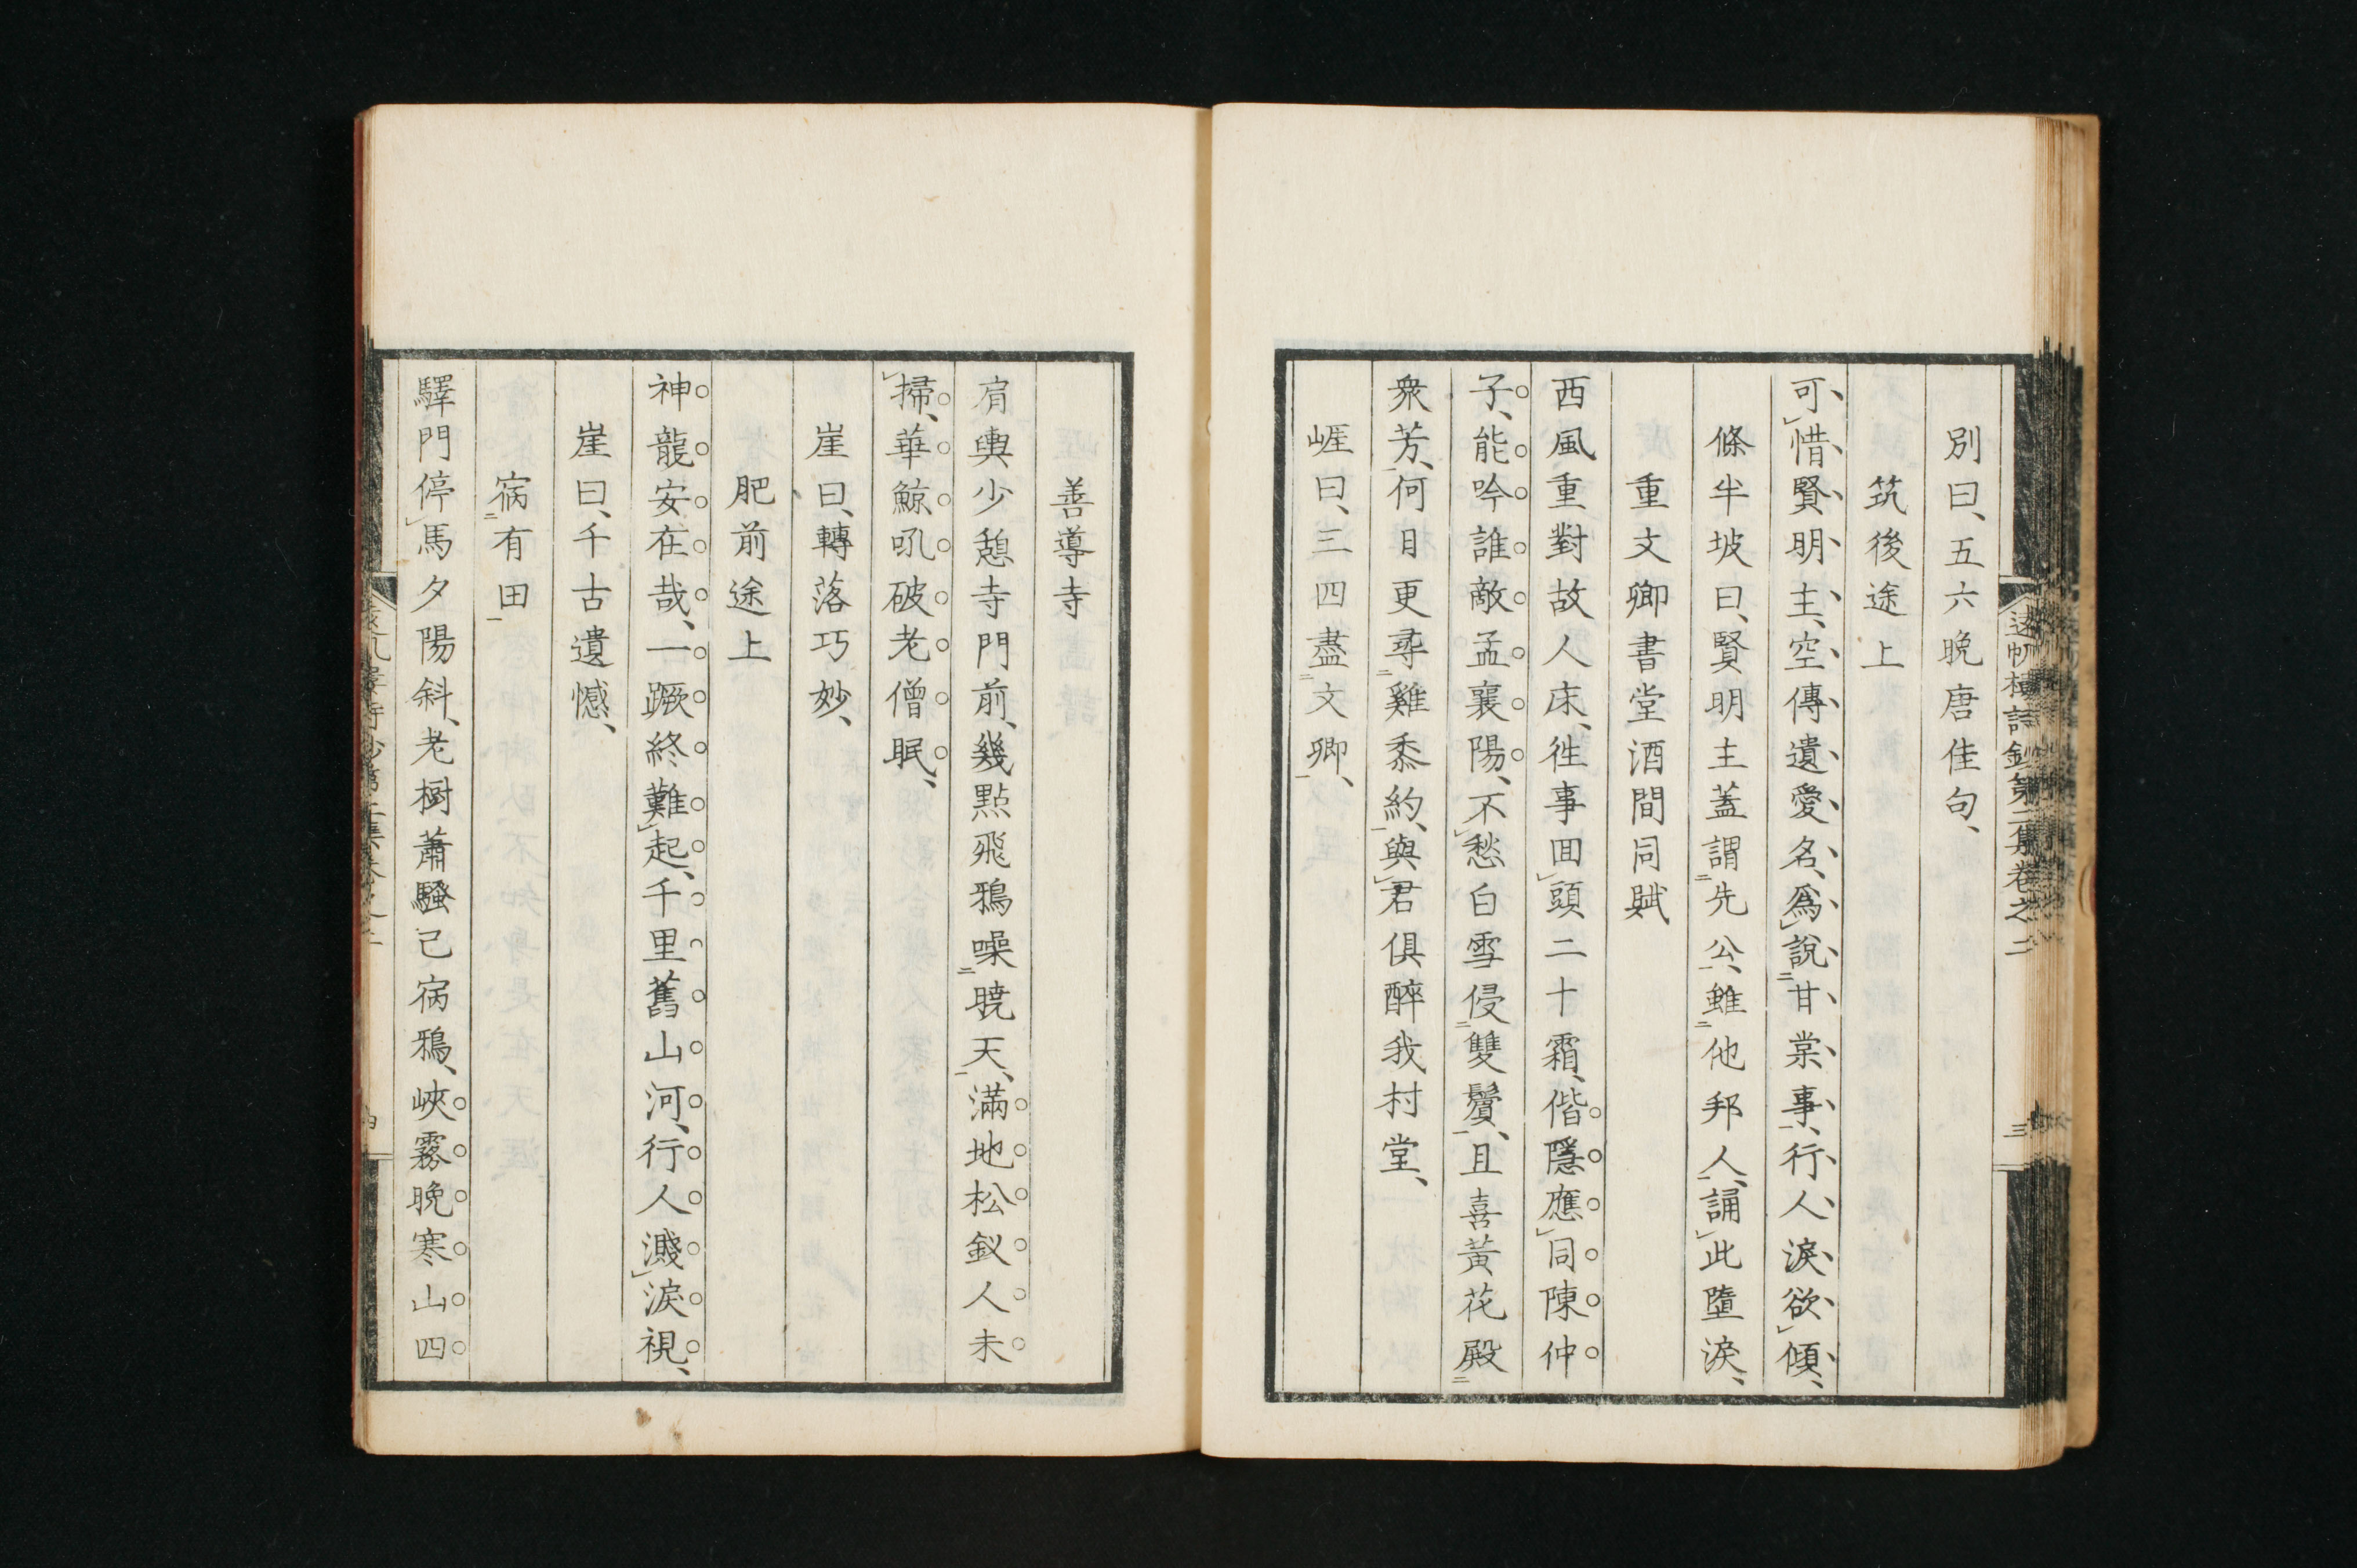 別曰、五六晩唐佳句、
筑後途上
可惜賢明主、空傳遺愛名、爲說甘棠事、行人淚欲傾、
條半坡曰、賢明主蓋謂先公、雖他邦人、誦此墮淚、
重文卿書堂酒間同賦
西風重對故人床、往事回頭二十霜、偕隱應同陳仲
子、能吟誰敵孟襄陽、不愁白雪侵雙鬢、且喜黃花殿
衆芳、何日更尋雞黍約、與君俱醉我村堂、
崕曰、三四盡文卿、
善導寺
肩輿少憩寺門前、幾點飛鴉噪曉天、滿地松釵人未
掃、華鯨吼破老僧眠、
崖曰、轉落巧妙、
肥前途上
神龍安在哉、一蹶終難起、千里舊山河、行人濺淚視、
崖曰、千古遺憾、
宿有田
驛門停馬夕陽斜、老樹蕭騷已宿鴉、峽霧晩寒山四
詩鈔第二集卷之二
三